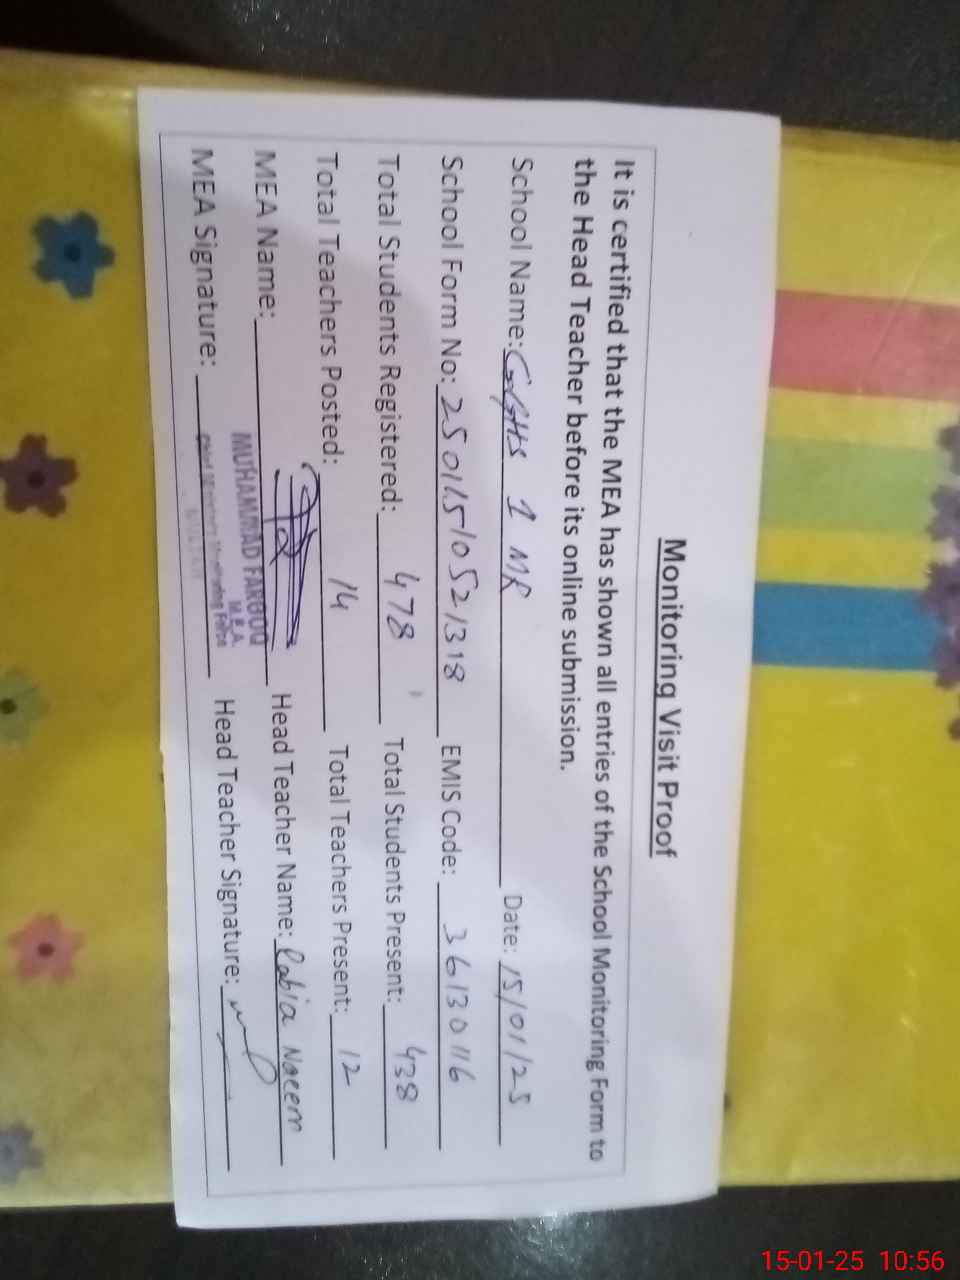 Monitoring Visit Proof
It is certified that the MEA has shown all entries of the School Monitoring Form to
the Head Teacher before its online submission.
School Name: GGHS 1 MR Date: 15/01/25
School Form No: 25011510521318 EMIS Code: 36130116
Total Students Registered: 478 Total Students Present: 438
Total Teachers Posted: 14 Total Teachers Present: 12
MEA Name: Head Teacher Name: Rabia Naeem
MUHAMMAD FAROOQ
M.E.A.
MEA Signature: Head Teacher Signature:
Monitoring Force
15-01-25 10:56